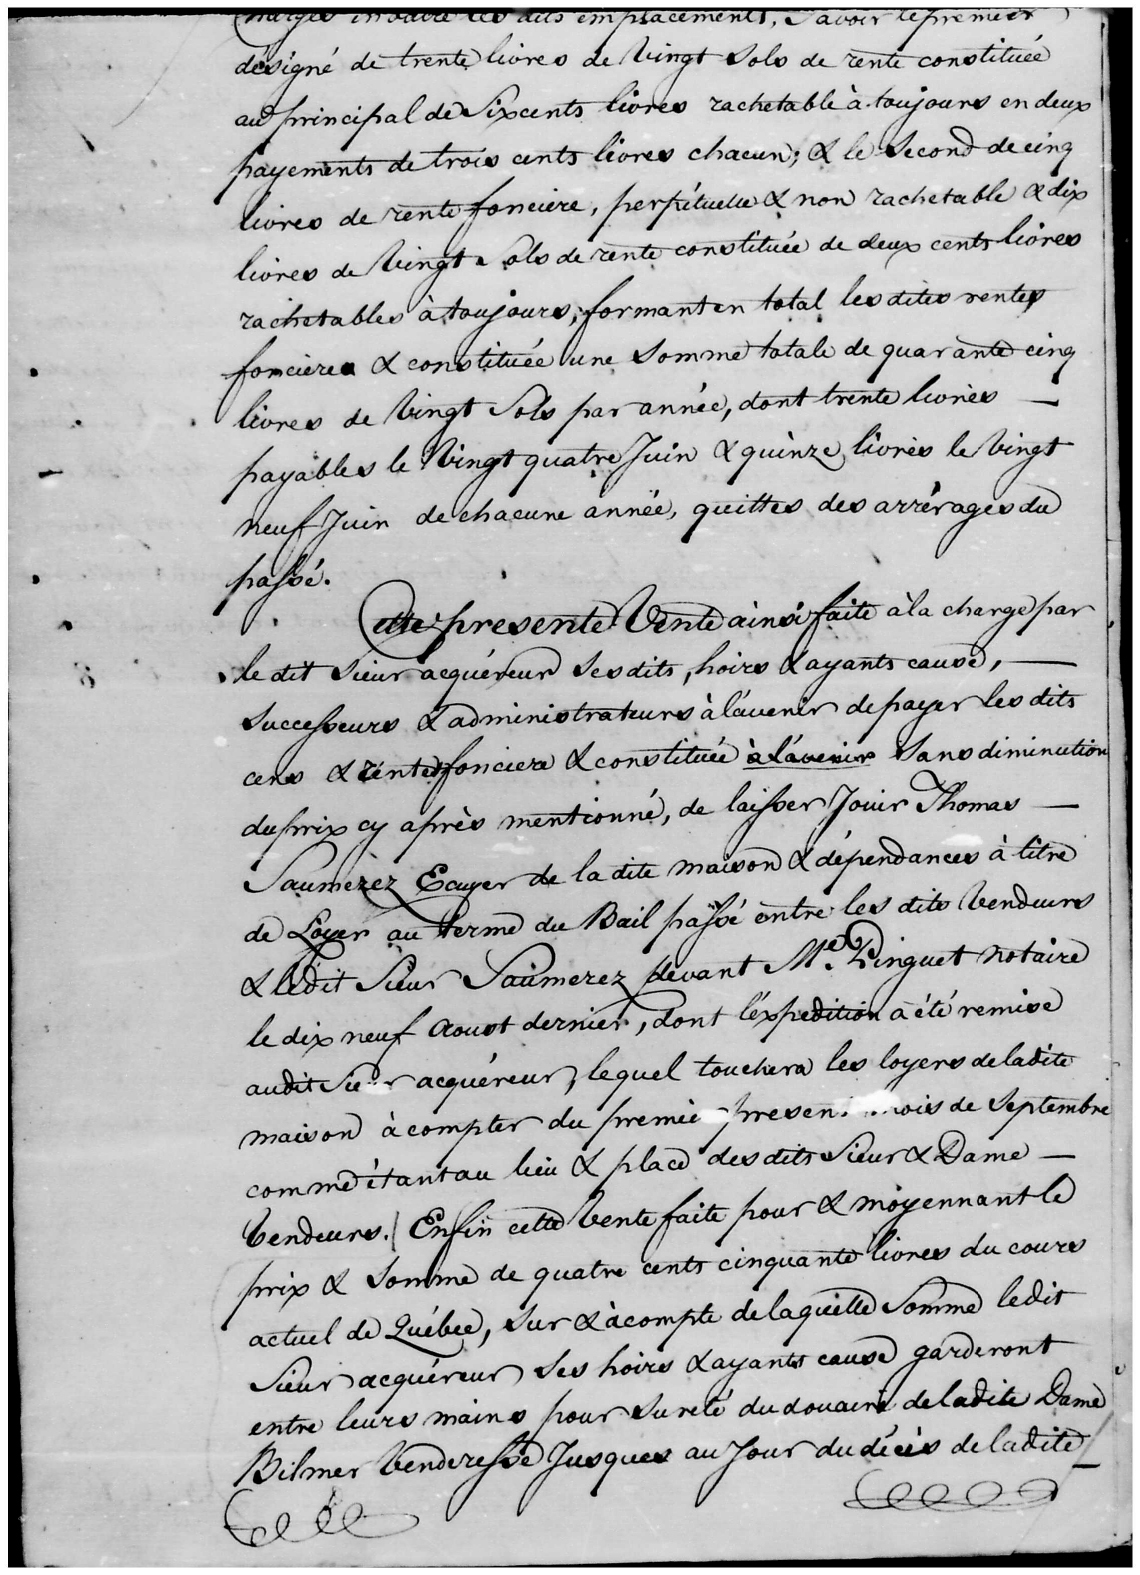 charges envers les dits emplacements, Savoir le premier
désigné de trente livres de Vingt Sols de rente constituée
au principal de Six cents livres rachetable à toujours en deux
payements de trois cents livres chacun; & le Second de cinq
livres de rente fonciere, perpétuelle & non rachetable & dix
livres de Vingt Sols de rente constituée de deux cents livres
rachetables à toujours, formant en total les dites rentes
fonciere & constituée une Somme totale de quarante cinq
livres de Vingt Sols par année, dont trente livres —
payables le Vingt quatre Juin & quinze livres le Vingt
neuf Juin de chacune année, quittes des arrérages du
passé.
Cette presente Vente ainsi faite à la charge par
le dit Sieur acquéreur Ses dits, hoirs & ayants cause, —
Successeurs & administrateurs à l'avenir de payer les dits
cens & rentes fonciere & constituée à l'avenir Sans diminution
du prix cy après mentionné, de laisser Jouir Thomas —
Saumèrez Ecuyer de la dite maison & dépendances à titre
de Loyer au terme du Bail passé entre les dits Vendeurs
& le dit Sieur Saumerez devant Me. Pinguet Notaire
le dix neuf Aoust dernier, dont l'éxpedition a été remise
audit Sieur acquéreur, lequel touchera les loyers de ladite
maison à compter du premier present mois de Septembre
comme étant au lieu & place des dits Sieur & Dame —
Vendeurs. Enfin cette Vente faite pour & moyennant le
prix & Somme de quatre cents cinquante livres du cours
actuel de Québec, Sur & à compte de laquelle Somme le dit
Sieur acquéreur Ses hoirs & ayants cause garderont
entre leurs mains pour Sureté du douaire de ladite Dame
Bilmer Venderesse Jusques au Jour du décès de ladite —